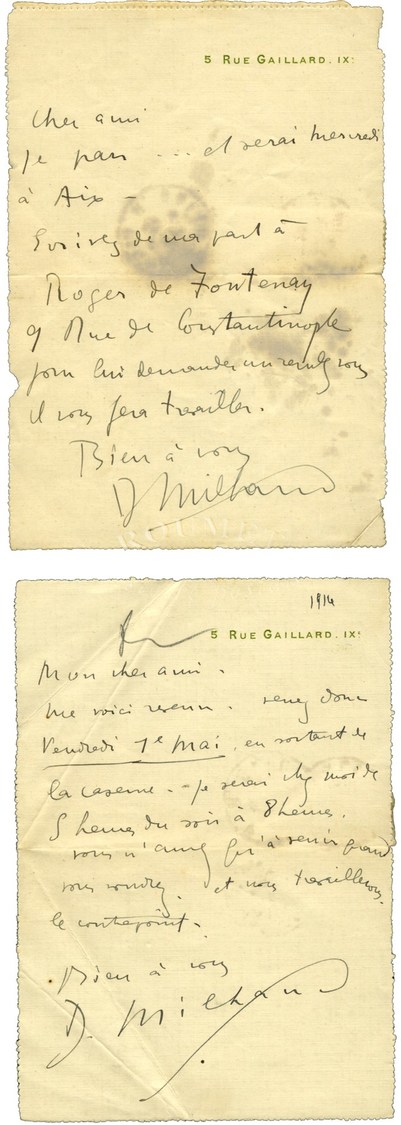 5 RUE GAILLARD. IXe
Cher ami
Je pars ... et serai mercredi
à Aix –
Ecrivez de ma part à
Roger de Fontenay
9 Rue de Constantinople
pour lui demander un rendez vous
il vous fera travailler.
Bien à vous
D Milhaud
1914
5 RUE GAILLARD. IXe
Mon cher ami.
me voici revenu. venez donc
Vendredi 1e Mai, en sortant de
la caserne. – je serai chez moi de
5 heures du soir à 8 heures.
vous n'aurez qu'à venir quand
vous voudrez. et nous travaillerons
le contrepoint.
Bien à vous
D. Milhaud